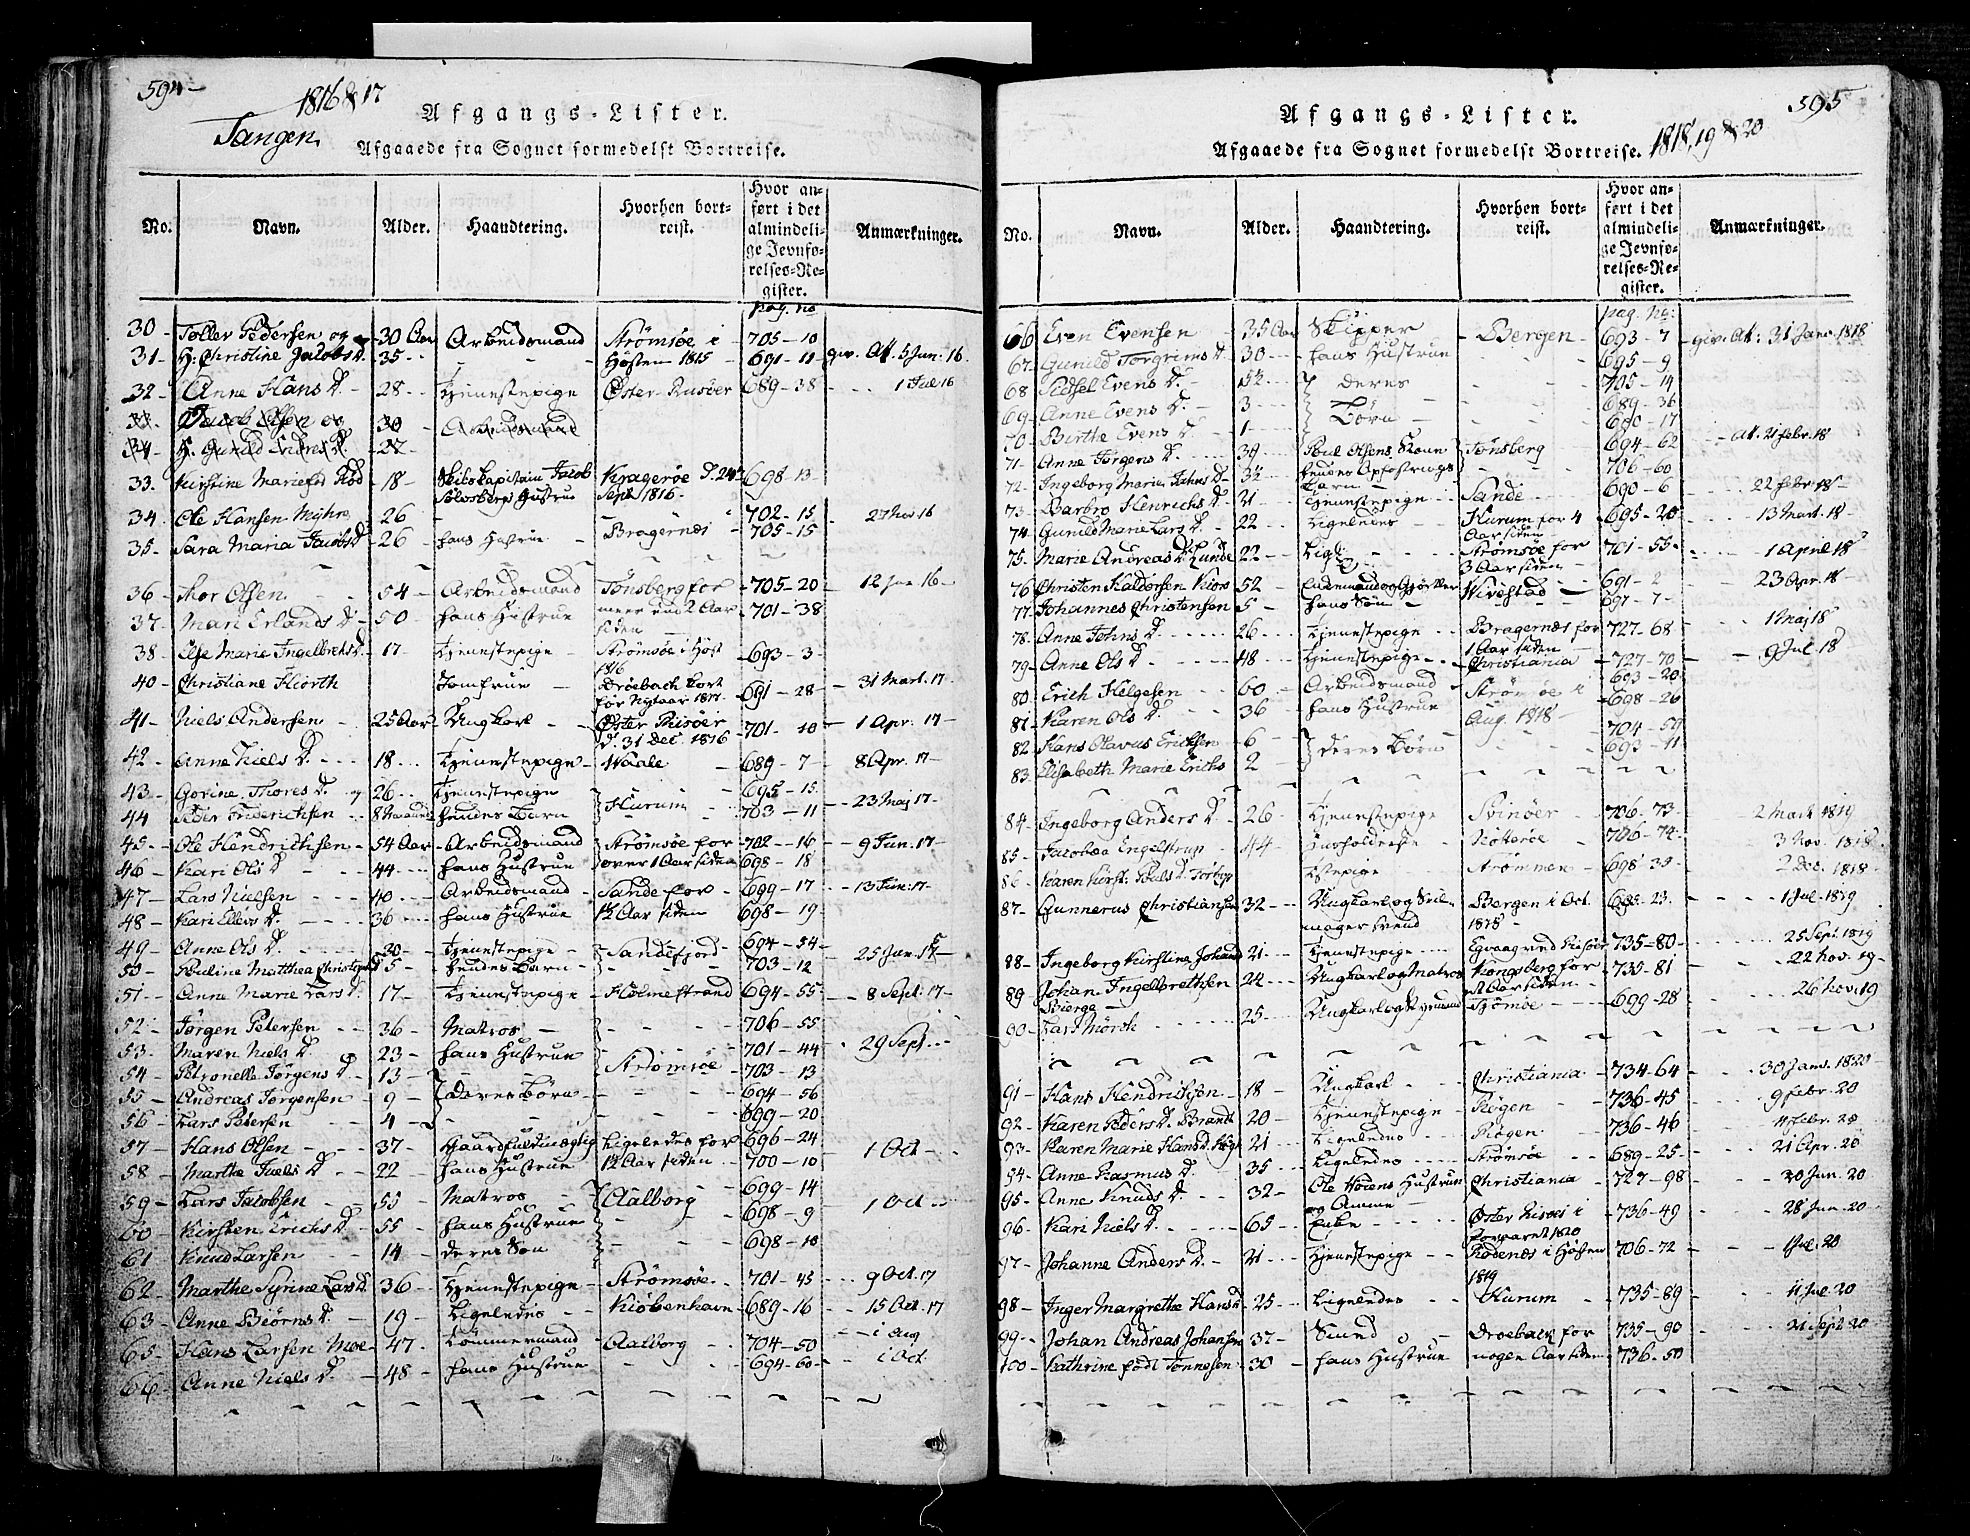 594
1816 & 17
Tangen
Afgangs-Lister.
Afgaaede fra Sognet formedelst Bortreise.
No. Navn. Alder. Haandtering. Hvorhen bortreist. Hvor anført i det almindelige Jevnførelses-Register. Anmærkninger.
pag. no
30 - Toller Pedersen og - 30 Aar Arbeidsmand Strømsøe i - 705 - 10
31 - H. Christine Jacobs D. 35 Høsten 1815 691 - 11 giv. Att. 5 Jun. 16
32 - Anne Hans D. - 28 - Tjenestepige Øster Riisøer 689 - 38 1 Jul 16
33. Jacob Olsen og 30 Arbeidsmand
34 H. Gunild D. - 27
33. Kirstine Marie 18 - Skibskapitain Jacob Kragerøe d. 24 698 - 13
Hustrue Sept. 1816 -
34 - Ole Hansen Myhre 26 - 702 - 15 27 Nov 16
35 - Sara Maria Jacobs D. 26 - hans Hustrue Bragernæs 705 - 15
36 - Thor Olsen 54 - Arbeidsmand Tønsberg for 705 - 20 12 16
37 - Mari Erlands D. 50 hans Hustrue meer end 2 Aar 701 - 38
siden
38 - Else Marie Ingelbrechts D. 17 - Tjenestepige - Strømsøe i Høst 693 - 3
1816
40 - Christiane Hiorth Jomfrue - Drøebach kort 691 - 28 31 Mart. 17
for Nytaar 1817
41 - Niels Andersen 25 Aar Ungkarl - Øster Riisøer 701 - 10 1 Apr. 17
d. 31 Dec. 1816
42 - Anne Niels D. 18 - Tjenestepige - Waale 689 - 7 - 8 Apr. 17
43 - Gorine Thores D. 26 Tjenestepige 695 - 15
44 Peder Friderichsen 8 Maaneder hendes Barn Hurum 703 - 11 23 Maj 17 -
45 - Ole Hendrichsen - 54 Aar - Arbeidsmand - Strømsøe for 702 - 16 - 9 Jun. 17
46 - Kari Ols D. 44 hans Hustrue over 1 Aar siden 698 - 18
47 - Lars Nielsen 40 Arbeidsmand - Sande for 699 - 17 - 13 Jun. 17
48 - Kari Ellevs D. 36 hans Hustrue 1½ Aar siden 698 - 19
49 - Anne Ols D. - 20 - Tjenestepige - Sandefjord 694 - 54
50 - Pauline Matthea Christophs D. 5 - hendes Barn 703 - 12 25 Jun. 17
51 - Anne Marie Lars D. 17 - Tjenestepige - Holmestrand 694 - 55 - 8 Sept. 17
52 - Jørgen Petersen 36 - Matros - 706 - 55
53 - Maren Niels D. 23 - hans Hustrue 701 - 44 29 Sept.
54 - Petronelle Jørgens D. - 13 - Strømsøe 703 - 13
55 - Andreas Jørgensen 9 - deres Børn 694 - 56
56 - Lars Petersen 4 699 - 20
57 - Hans Olsen 37 - Gaardfuldmægtig Ligeledes for 696 - 24 1 Oct
58 - Marthe Juels D. 22 hans Hustrue 1½ Aar siden 700 - 10
59 - Lars Jacobsen 55 Matros Aalborg 699 - 14 1 Oct
60 - Kirsten Erichs D. - 55 hans Hustrue 698 - 9
61 Knud Larsen 14 - deres Søn 698 - 10
62 - Marthe Syrine Lars D. 36 - Tjenestepige - Strømsøe 701 - 45 9 Oct. 17
63 - Anne Biørns D. 19 - Ligeledes Kiøbenhavn 689 - 16 15 Oct. 17
65 - Hans Larsen Moe - 47. Tømmermand - Aalborg 704 - 50 1 Aug
66 - Anne Niels D. 48 - hans Hustrue 694 - 60 1 Oct
595
Afgangs-Lister.
Afgaaede fra Sognet formedelst Bortreise. 1818, 19 & 20
No. Navn. Alder. Haandtering. Hvorhen bortreist. Hvor anført i det almindelige Jevnførelses-Register. Anmærkninger.
pag. no.
66 Even Evensen - 35 Aar Skipper - Bergen - 693 - 7 giv. Att. 31 Janv. 1818
67 - Gunild Torgrims D. 30 hans Hustrue 695 - 9
68 Evens D. deres 705 - 14
69 - Anne Evens D. - 3 Børn 689 - 36
70 - Birthe Evens D. - 1 - 690 - 17
71 - Anne Jørgens D. 39 Poul Olsens Kone Tønsberg 694 - 62 Att. 21 Febr. 18
72 - Ingeborg Marie D. hendes Opfostrings 706 - 60
Barn -
73 - Barbro Henrichs D. 21 Tjenestepige Sande - 690 - 6 22 Febr 18
74 - Gunild Marie Lars D. 22 Ligeledes Hurum for 4 695 - 20 13 Mart. 18
Aar siden
75. Marie Andreas D. Lunde 22 - Ligl. Strømsøe for 701 - 55 1 April 18
3 Aar siden
76 Christen Haldorsen 52 Vivestad 691 - 2 23 Apr. 18
77 Johannes Christensen 5 - hans Søn 697 - 7
78. Anne Johns D. 26 Tjenestepige Bragernæs for 727 - 68 1 Maj 18
1 Aar siden
79 - Anne Ols D. 48 Tjenestepige Christiania 727 - 70 9 Jul. 18
80 - Erich Helgesen 60 - Arbeidsmand Strømsøe i 693 - 20
81 - Karen Ols D. 36 hans Hustrue Aug. 1818 - 698 - 26
82 - Hans Olavus Erichsen 6 deres Børn 704 - 59
83. Elisabeth Marie Erichs 2 693 - 11
84 - Ingeborg Anders D. 26 Tjenestepige Svinøer 706 - 73 2 Mart 1819
85 - Jacobæa Engelstrup 44 Huusholderske Nøtterøe 706 - 74 3 Nov. 1818
86 - Karen Kirst. Poels D. Tjstepige Strømmen 698 - 39 2 Dec. 1818
87 - Gunnerus Christiansen 32 Ungkarl og Seil- Bergen i Oct. 685 - 23 1 Jul. 1819
mager Svend 1818 -
88 - Ingeborg Kirstine Johans D. 21 Tjenestepige 735 - 80 25 Sept. 1819
89 - Johan Ingelbrethsen 24 Ungkarl og Matros Kongsberg for 735 - 81 22 Nov. 19
Aar siden
90 - Lars Mörch 25 Ungkarl og Tjømøe 699 - 28 26 Nov. 19
91 - Hans Hendrichsen 18 Ungkarl Christiania 734 - 64 30 Janv. 1820
92 - Karen Peders D. Brandt 20 - Tjenestepige Røgen 736 - 45 9 Febr. 20
93 - Karen Marie Hans D. 21 Ligeledes Røgen 736 - 46 11 Febr. 20
94 - Anne Rasmus D. 35 Ligeledes Strømsøe 689 - 25 21 Apr. 20
95 - Anne Knuds D. 32 - Ole Hoiens Hustrue Christiania - 727 - 98 20 Jun. 20
og Amme
96 - Kari Niels D. 65 Enke Øster Riisøer i 736 - 49 28 Jun. 20
Foraaret 1820
97 - Johanne Anders D. - 21 - Tjenestepige Rødenæs i Høsten 706 - 72 1 Jul. 20
1819
98 - Inger Margrethe Hans D. 25 Ligeledes Hurum 735 - 89 11 Jul. 20
99 - Johan Andreas Johansen 37 - Smed - Drøeback for 735 - 90 21 Sept 20
100 - Kathrine født Tønnesen 30 hans Hustrue nogen Aar siden 736 - 50